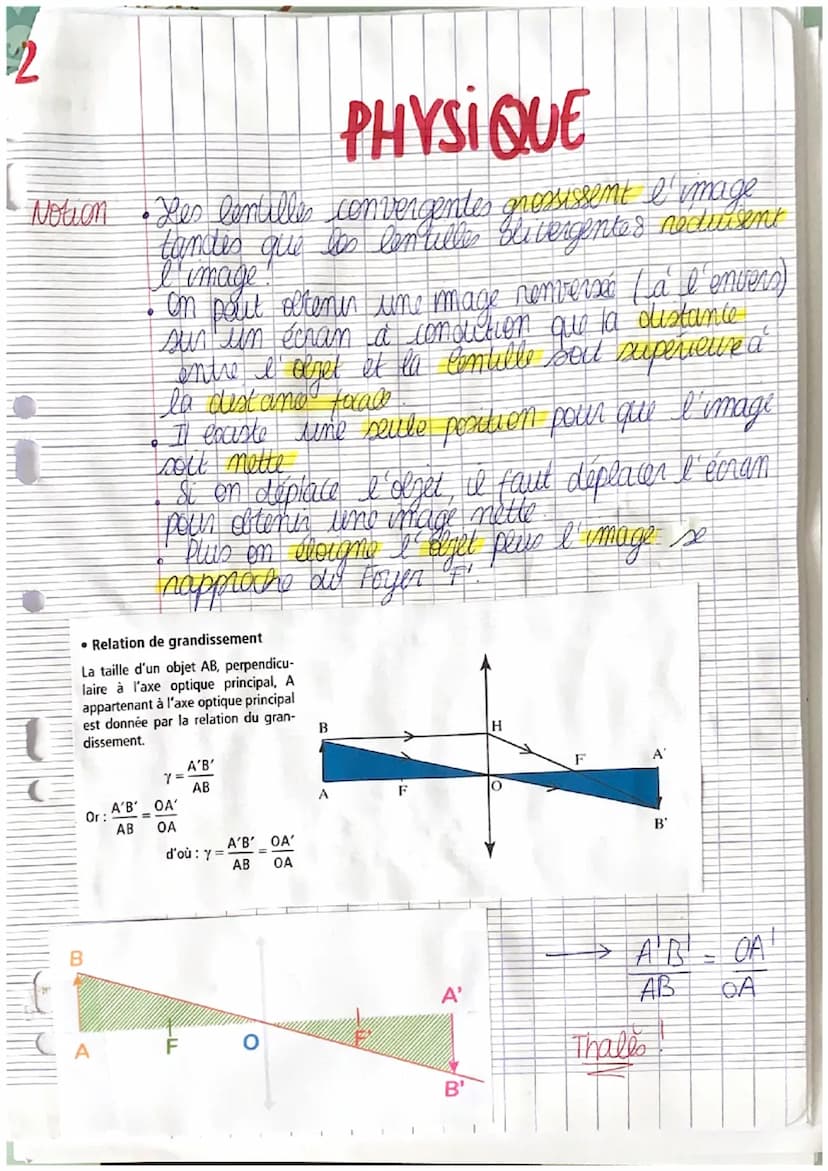 2
PHYSIQUE
Notion
• Les lentilles convergentes grossissent l'image
tandis que les lentilles divergentes réduisent
l'image.
• On peut obtenir une image renversé (à l'envers)
sur un écran à condition que la distance
entre l'objet et la lentille soit supérieure à
la distance focale.
• Il existe une seule position pour que l'image
soit nette
• Si on déplace l'objet, il faut déplacer l'écran
pour obtenir une image nette.
• Plus on éloigne l'objet plus l'image se
rapproche du Foyer F'.
• Relation de grandissement
La taille d'un objet AB, perpendicu-
laire à l'axe optique principal, A
appartenant à l'axe optique principal
est donnée par la relation du gran-
dissement.
γ = A'B' / AB
Or : A'B' / AB = OA' / OA
d'où : γ = A'B' / AB = OA' / OA
B
H
F
A'
A
F
O
B'
B
A'
A
F
O
F'
B'
→ A'B' / AB = OA' / OA
Thalès !